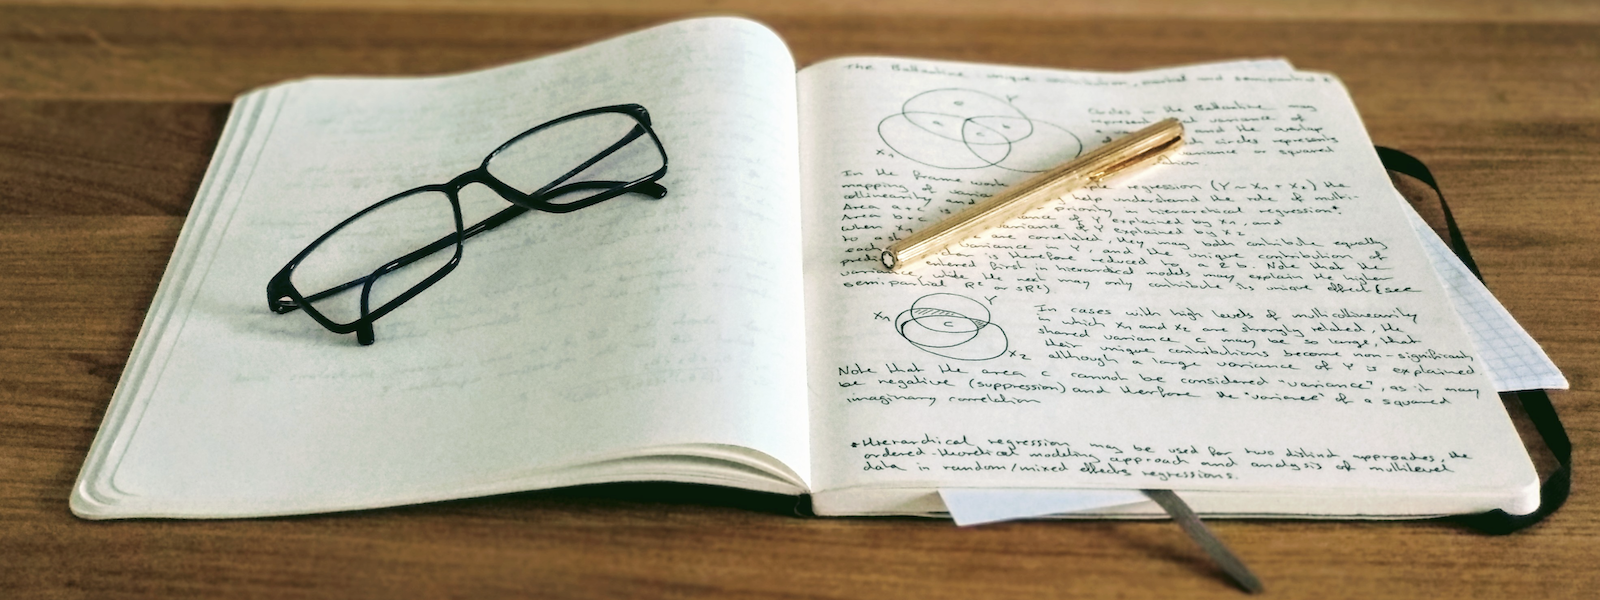 The Ballantine unique contribution, partial and semipartial r
Y
X1
a
b
c
Circles in the Ballantine may
represent variance of
and the overlap
circles represents
variance or squared
In the frame work ple regression (Y ~ X1 + X2) the
mapping of varian help understand the role of multi-
collinearity and priority in hierarchical regression*.
Area a + c is variance of Y explained by X1, and
Area b + c is variance of Y explained by X2
when X1 are correlated, they may both contribute equally
to a sh variance in Y, and the unique contribution of
each is therefore reduced to a & b. Note that the
predic entered first in hierarchical models may explain the higher
varian while the rest may only contribute its unique effect (see
semipartial R² or sR²)
Y
X1
c
X2
In cases with high levels of multicollinearity
in which X1 and X2 are strongly related, the
shared variance c may be so large, that
their unique contributions become non-significant
although a large variance of Y is explained
Note that the area c cannot be considered "variance", as it may
be negative (suppression) and therfore the "variance" of a squared
imaginary correlation
*Hierarchical regression may be used for two distinct approaches, the
ordered-theoretical modeling approach and analysis of multilevel
data in random/mixed effects regressions.